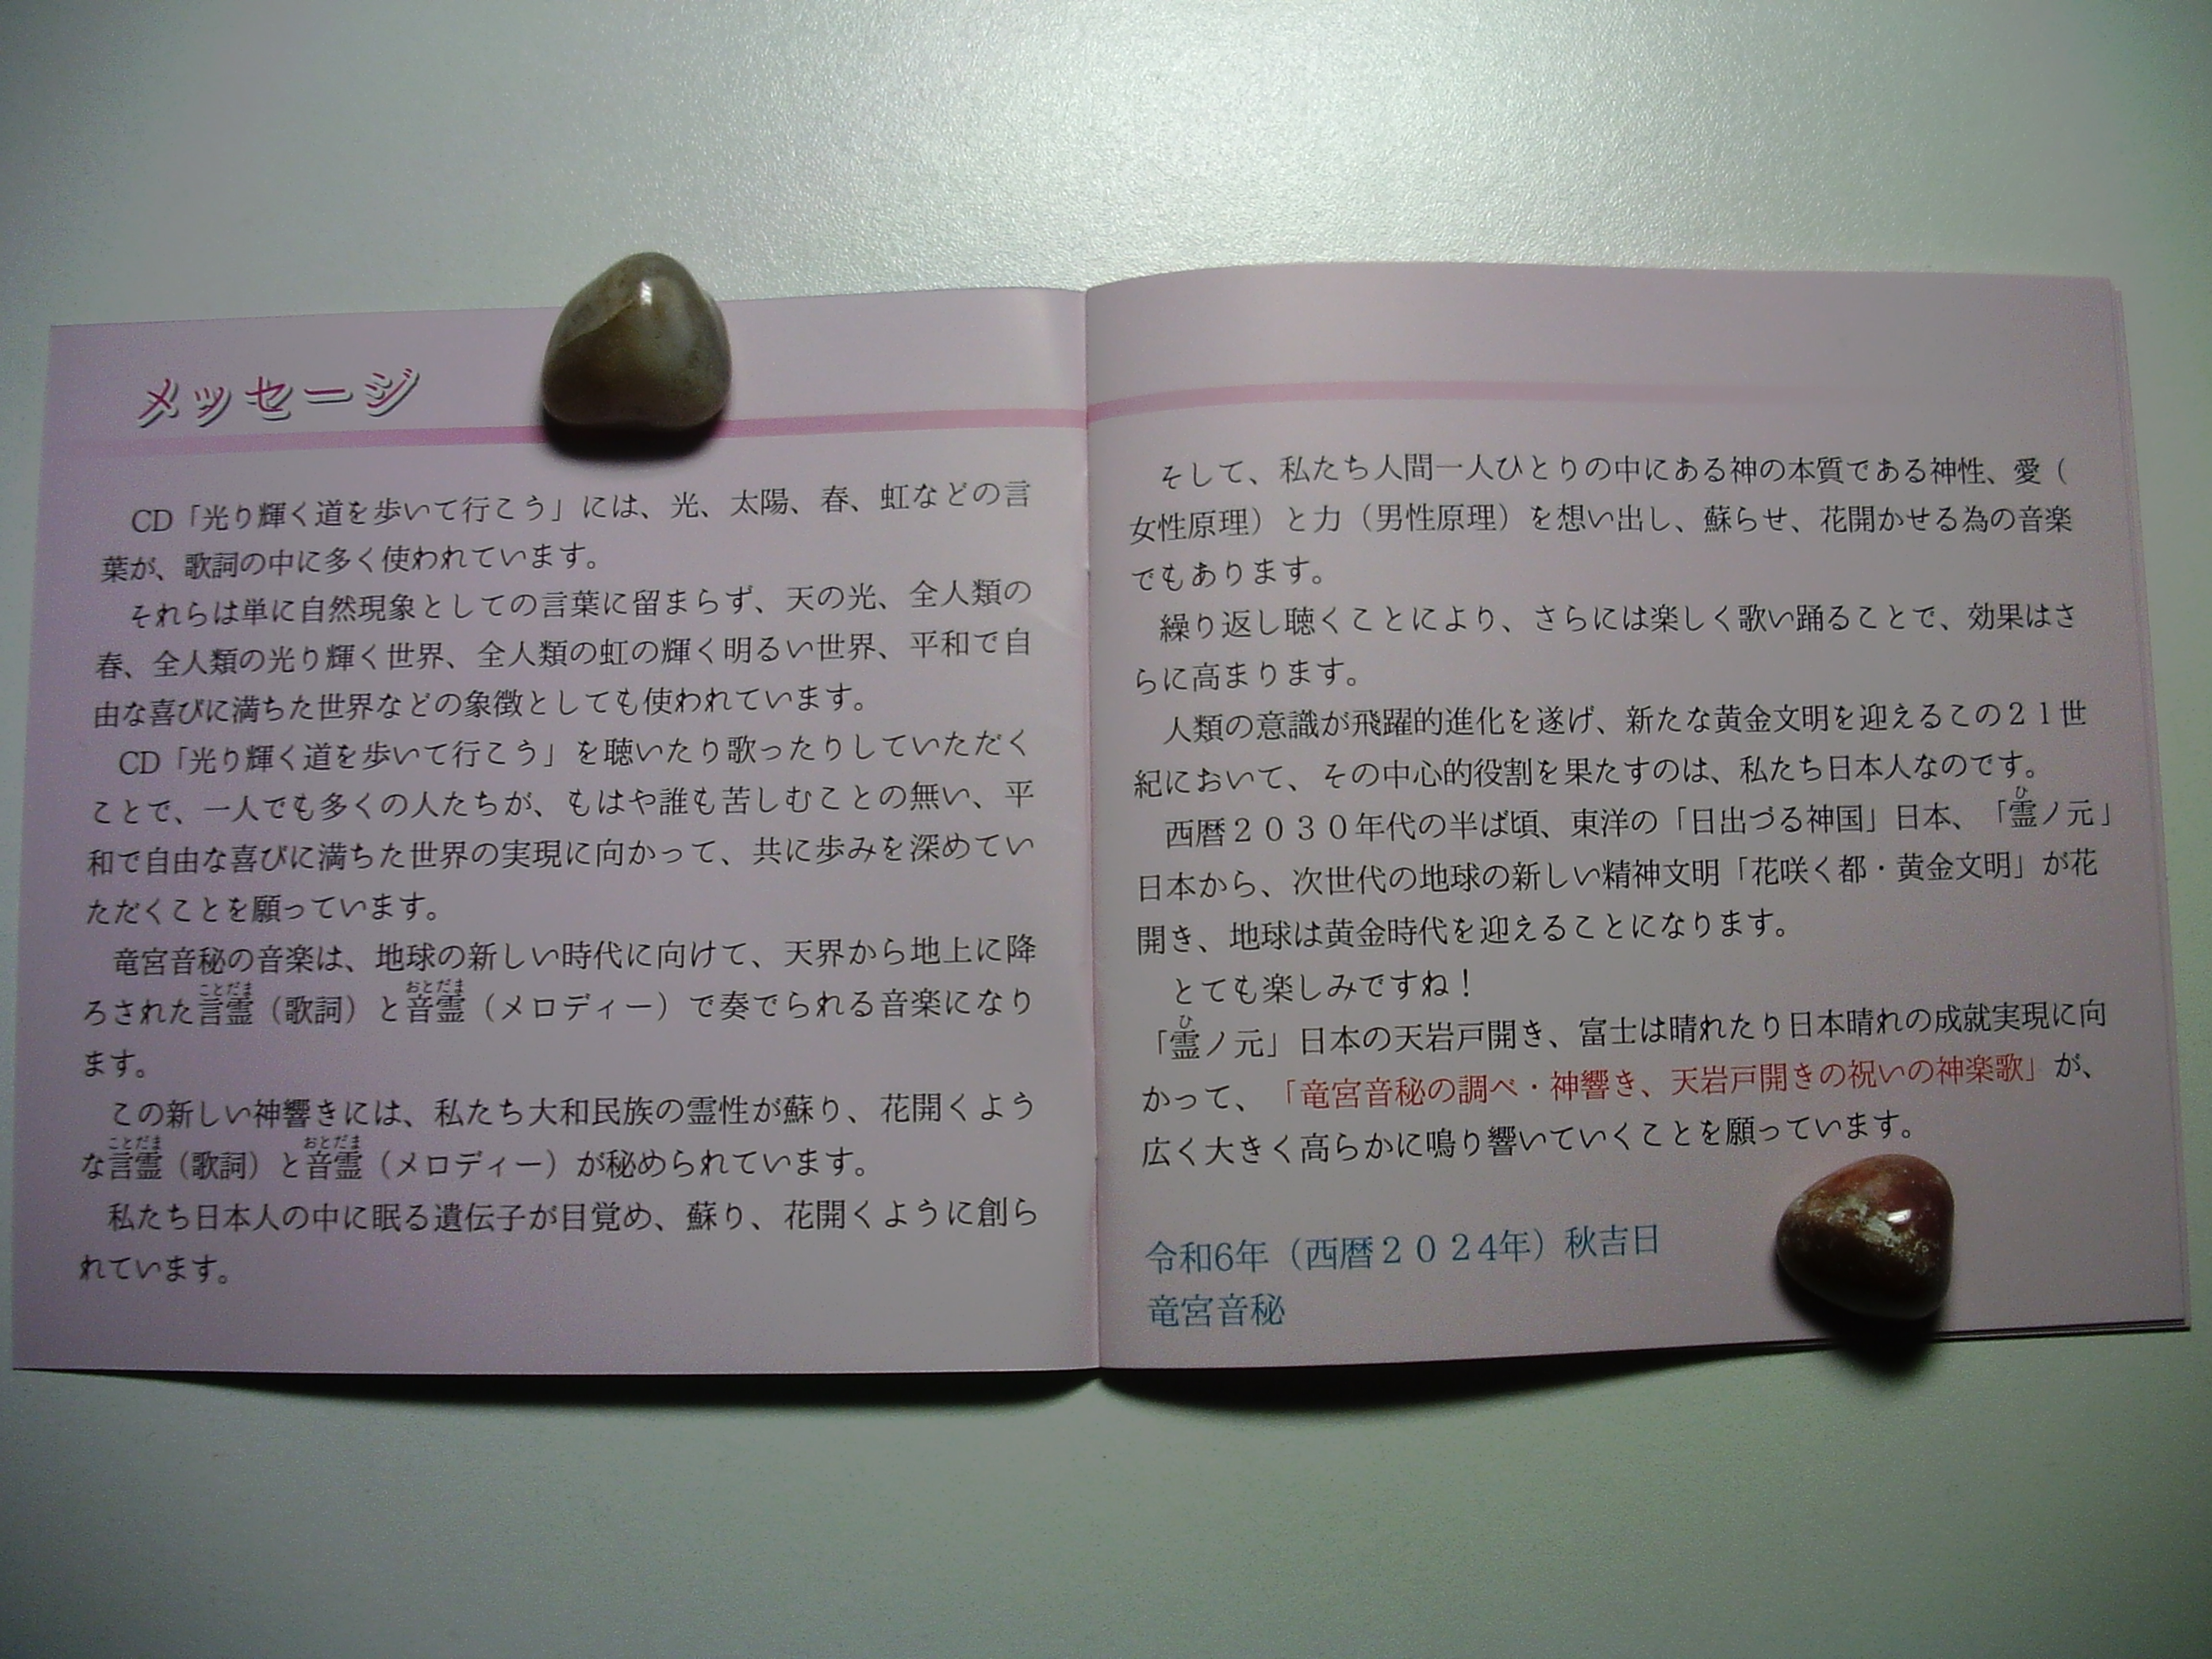 メッセージ
CD「光り輝く道を歩いて行こう」には、光、太陽、春、虹などの言
葉が、歌詞の中に多く使われています。
それらは単に自然現象としての言葉に留まらず、天の光、全人類の
春、全人類の光り輝く世界、全人類の虹の輝く明るい世界、平和で自
由な喜びに満ちた世界などの象徴としても使われています。
CD「光り輝く道を歩いて行こう」を聴いたり歌ったりしていただく
ことで、一人でも多くの人たちが、もはや誰も苦しむことの無い、平
和で自由な喜びに満ちた世界の実現に向かって、共に歩みを深めてい
ただくことを願っています。
竜宮音秘の音楽は、地球の新しい時代に向けて、天界から地上に降
ことだま おとだま
ろされた言霊（歌詞）と音霊（メロディー）で奏でられる音楽になり
ます。
この新しい神響きには、私たち大和民族の霊性が蘇り、花開くよう
ことだま おとだま
な言霊（歌詞）と音霊（メロディー）が秘められています。
私たち日本人の中に眠る遺伝子が目覚め、蘇り、花開くように創ら
れています。
そして、私たち人間一人ひとりの中にある神の本質である神性、愛（
女性原理）と力（男性原理）を想い出し、蘇らせ、花開かせる為の音楽
でもあります。
繰り返し聴くことにより、さらには楽しく歌い踊ることで、効果はさ
らに高まります。
人類の意識が飛躍的進化を遂げ、新たな黄金文明を迎えるこの２１世
紀において、その中心的役割を果たすのは、私たち日本人なのです。
ひ
西暦２０３０年代の半ば頃、東洋の「日出づる神国」日本、「霊ノ元」
日本から、次世代の地球の新しい精神文明「花咲く都・黄金文明」が花
開き、地球は黄金時代を迎えることになります。
とても楽しみですね！
ひ
「霊ノ元」日本の天岩戸開き、富士は晴れたり日本晴れの成就実現に向
かって、「竜宮音秘の調べ・神響き、天岩戸開きの祝いの神楽歌」が、
広く大きく高らかに鳴り響いていくことを願っています。
令和6年（西暦２０２4年）秋吉日
竜宮音秘